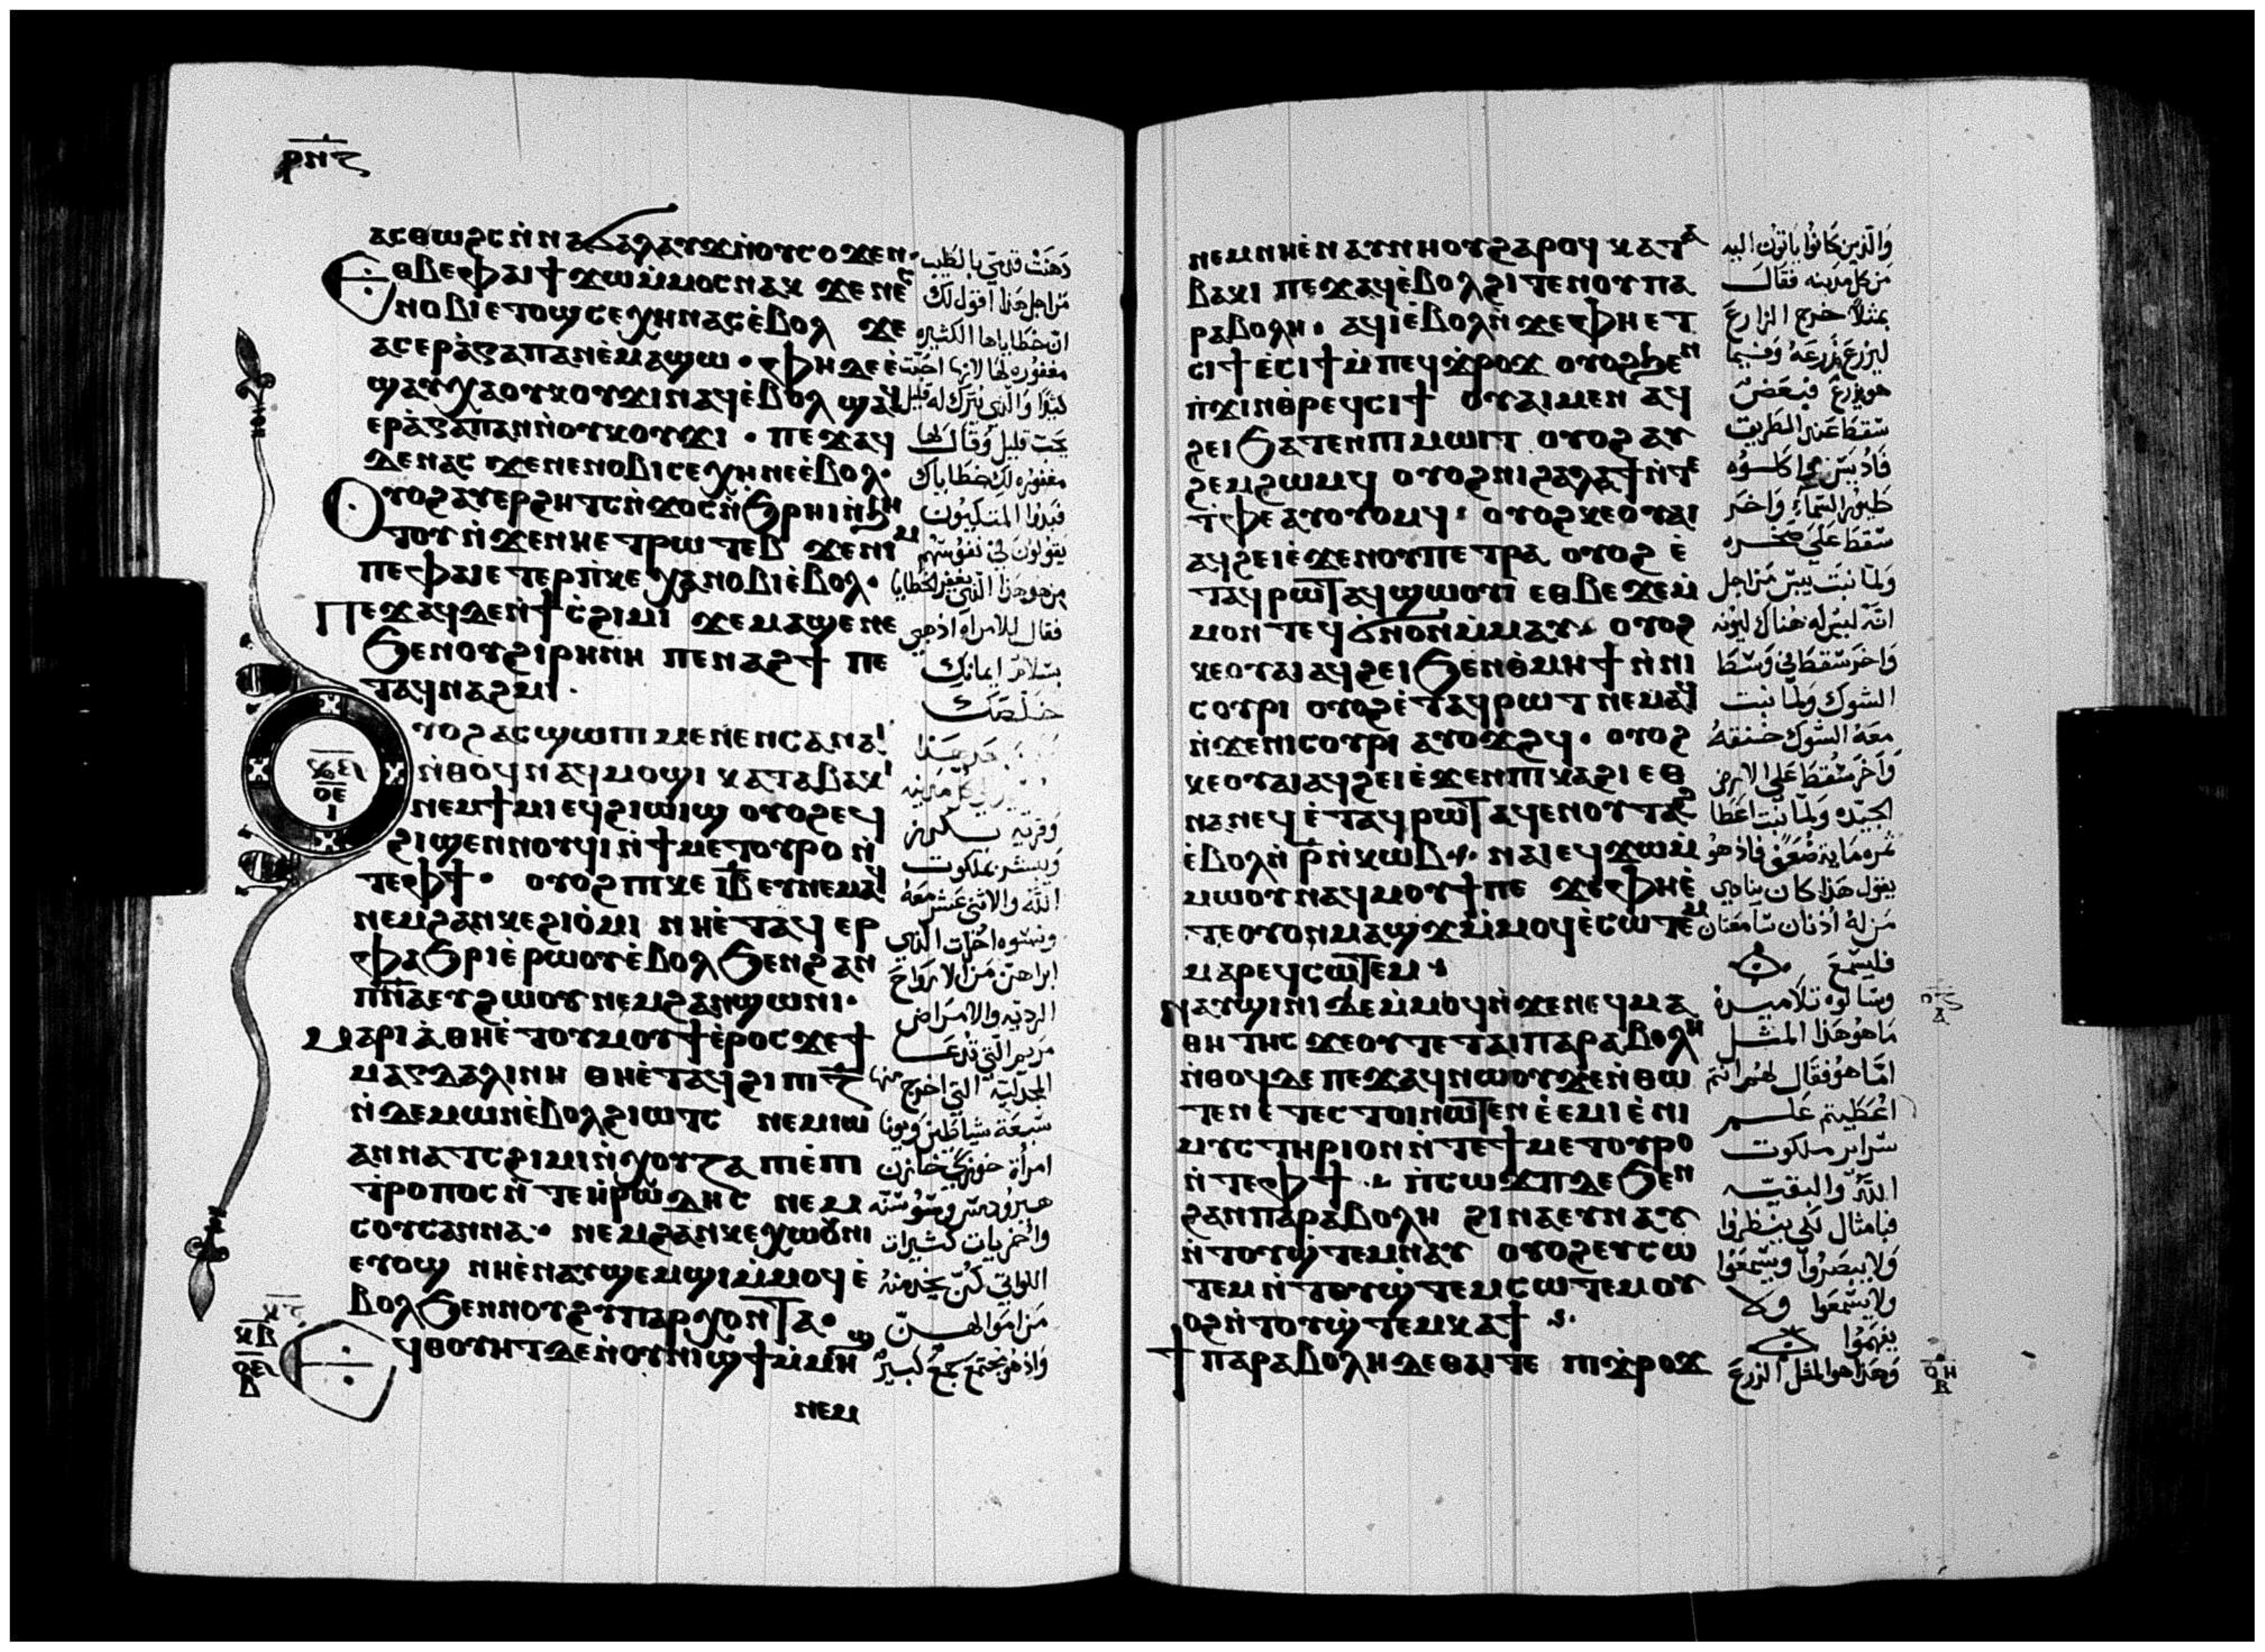 ⲣⲛⲋ
ⲁⲥⲑⲱϩⲥ ⲛ̀ⲛⲁϭⲁⲗⲁⲩϫ ⲛ̀ⲟⲩⲥⲟϫⲉⲛ·
Ⲉⲑⲃⲉⲫⲁⲓ ϯϫⲱ ⲙ̀ⲙⲟⲥ ⲛⲁⲕ ϫⲉ ⲛⲉⲥ
ⲛⲟⲃⲓ ⲉⲧⲟϣ ⲥⲉⲭⲏ ⲛⲁⲥ ⲉ̀ⲃⲟⲗ ϫⲉ
ⲁⲥⲉⲣⲁ̀ⲅⲁⲡⲁⲛ ⲉ̀ⲙⲁϣⲱ· ⲫⲏ ⲇⲉ ⲉ̀
ϣⲁⲩⲭⲁ ⲟⲩⲕⲟⲩϫⲓ ⲛⲁϥ ⲉ̀ⲃⲟⲗ ϣⲁϥ
ⲉⲣⲁ̀ⲅⲁⲡⲁⲛ ⲛ̀ⲟⲩⲕⲟⲩϫⲓ· ⲡⲉϫⲁϥ
ⲇⲉ ⲛⲁⲥ ϫⲉ ⲛⲉⲛⲟⲃⲓ ⲥⲉⲭⲏ ⲛⲉ ⲉ̀ⲃⲟⲗ·
Ⲟⲩⲟϩ ⲁⲩⲉⲣϩⲏⲧⲥ ⲛ̀ϫⲟⲥ ⲛ̀ϧⲣⲏⲓ ⲛ̀ϧⲏ
ⲧⲟⲩ ⲛ̀ϫⲉ ⲛⲏⲉⲧⲣⲱⲧⲉⲃ ϫⲉ ⲛⲓⲙ
ⲡⲉ ⲫⲁⲓ ⲉⲧⲉⲣⲡ̀ⲕⲉⲭⲁ ⲛⲟⲃⲓ ⲉ̀ⲃⲟⲗ·
Ⲡⲉϫⲁϥ ⲇⲉ ⲛ̀ϯⲥ̀ϩⲓⲙⲓ ϫⲉ ⲙⲁϣⲉ ⲛⲉ
ϧⲉⲛ ⲟⲩϩⲓⲣⲏⲛⲏ ⲡⲉⲛⲁϩϯ ⲡⲉ
ⲧⲁϥⲛⲁϩⲙⲓ·
ⲩⲟϩ ⲁⲥϣⲱⲡⲓ ⲙⲉⲛⲉⲛⲥⲁ ⲛⲁⲓ
ⲛ̀ⲑⲟϥ ⲛⲁϥⲙⲟϣⲓ ⲕⲁⲧⲁ ⲃⲁⲕⲓ
ⲛⲉⲙ ϯⲙⲓ ⲉϥϩⲓⲱⲓϣ ⲟⲩⲟϩ ⲉϥ
ϩⲓϣⲉⲛⲛⲟⲩϥⲓ ⲛ̀ϯⲙⲉⲧⲟⲩⲣⲟ ⲛ̀
ⲧⲉ ⲫϯ· ⲟⲩⲟϩ ⲡⲓⲕⲉ ⲓⲃ ⲉⲩⲛⲉⲙⲁϥ
ⲛⲉⲙ ϩⲁⲛⲕⲉϩⲓⲟ̀ⲙⲓ ⲛⲏⲉ̀ⲧⲁϥⲉⲣ
ⲫⲁϧⲣⲓ ⲉ̀ⲣⲱⲟⲩ ⲉ̀ⲃⲟⲗ ϧⲉⲛ ϩⲁⲛ
ⲡ̅ⲛ̅ⲁ̅ ⲉⲩϩⲱⲟⲩ ⲛⲉⲙ ϩⲁⲛϣⲱⲛⲓ·
Ⲙⲁⲣⲓⲁ̀ ⲑⲏⲉ̀ⲧⲟⲩⲙⲟⲩϯ ⲉ̀ⲣⲟⲥ ϫⲉ ϯ
ⲙⲁⲅⲇⲁⲗⲓⲛⲏ ⲑⲏⲉ̀ⲧⲁϥϩⲓ ⲡⲓ ⲍ̅
ⲛ̀ⲇⲉⲙⲱⲛ ⲉ̀ⲃⲟⲗ ϩⲓⲱⲧⲥ ⲛⲉⲙ ⲓⲱ
ⲁⲛⲛⲁ ⲧⲥϩⲓⲙⲓ ⲛ̀ⲭⲟⲩⲍⲁ ⲡⲓⲉ̀ⲡⲓ
ⲧⲣⲟⲡⲟⲥ ⲛ̀ⲧⲉ ⲏ̀ⲣⲱⲇⲏⲥ ⲛⲉⲙ
ⲥⲟⲩⲥⲁⲛⲛⲁ· ⲛⲉⲙ ϩⲁⲛⲕⲉⲭⲱⲟⲩⲛⲓ
ⲉⲩⲟϣ ⲛⲏⲉ̀ⲛⲁⲩϣⲉⲙϣⲓ ⲙ̀ⲙⲟϥ ⲉ̀
ⲃⲟⲗ ϧⲉⲛ ⲛⲟⲩϩⲩⲡⲁⲣⲭⲟⲛⲧⲁ·
ϥⲑⲟⲩⲏⲧ ⲇⲉ ⲛ̀ⲟⲩⲛⲓϣϯ ⲙ̀ⲙⲏϣ
ⲛⲉⲙ
دهنت قدمي بالطيب
من اجل هذا اقول لك
ان خطاياها الكثيره
مغفوره لها لانها احبت
كثيرًا والذي يترك له قليل
يحب قليل وقال لها
مغفوره لك خطاياك
فبدوا المتكيون
يقولون في نفوسهم
من هو هذا الذي يغفر الخطايا
فقال للامراه اذهبي
بسلام ايمانك
خلصك
وقريه يكرز
ويبشر بملكوت
الله والاثني عشر معه
ونسوه اخرات الذي
ابراهن من الارواح
الرديه والامراض
مريم التي تدعا
المجدليه التي اخرج منها
سبعة شياطين ويونا
امراة خوزي خازن
هيرودس وسوسنه
واخريات كثيرات
اللواتي كن يخدمنه
من اموالهن
واذ هو مجتمع جمع كبير
ⲛⲉⲙ ⲛⲏⲉ̀ⲛⲁⲩⲛⲏⲟⲩ ϩⲁⲣⲟϥ ⲕⲁⲧⲁ
ⲃⲁⲕⲓ ⲡⲉϫⲁϥ ⲉ̀ⲃⲟⲗ ϩⲓⲧⲉⲛ ⲟⲩⲡⲁ
ⲣⲁⲃⲟⲗⲏ· ⲁϥⲓ̀ ⲉ̀ⲃⲟⲗ ⲛ̀ϫⲉ ⲫⲏⲉⲧ
ⲥⲓϯ ⲉ̀ⲥⲓϯ ⲙ̀ⲡⲉϥϫ̀ⲣⲟϫ ⲟⲩⲟϩ ϧⲉⲛ
ⲡ̀ϫⲓⲛⲑⲣⲉϥⲥⲓϯ ⲟⲩⲁⲓ ⲙⲉⲛ ⲁϥ
ϩⲉⲓ ϧⲁⲧⲉⲛ ⲡⲓⲙⲱⲓⲧ ⲟⲩⲟϩ ⲁⲩ
ϩⲉⲙϩⲱⲙϥ ⲟⲩⲟϩ ⲛⲓϩⲁⲗⲁϯ ⲛ̀ⲧⲉ
ⲧ̀ⲫⲉ ⲁⲩⲟⲩⲟⲙϥ· ⲟⲩⲟϩ ⲕⲉⲟⲩⲁⲓ
ⲁϥϩⲉⲓ ⲉ̀ϫⲉⲛ ⲟⲩⲡⲉⲧⲣⲁ ⲟⲩⲟϩ ⲉ̀
ⲧⲁϥⲣⲱⲧ ⲁϥϣⲱⲟⲩⲓ ⲉⲑⲃⲉ ϫⲉ ⲙ̀
ⲙⲟⲛⲧⲉϥ ϭⲛⲟⲛ ⲙ̀ⲙⲁⲩ· ⲟⲩⲟϩ
ⲕⲉⲟⲩⲁⲓ ⲁϥϩⲉⲓ ϧⲉⲛ ⲑ̀ⲙⲏϯ ⲛ̀ⲛⲓ
ⲥⲟⲩⲣⲓ ⲟⲩⲟϩ ⲉ̀ⲧⲁϥⲣⲱⲧ ⲛⲉⲙⲁϥ
ⲛ̀ϫⲉ ⲛⲓⲥⲟⲩⲣⲓ ⲁⲩⲟϫϩϥ· ⲟⲩⲟϩ
ⲕⲉⲟⲩⲁⲓ ⲁϥϩⲉⲓ ⲉ̀ϫⲉⲛ ⲡⲓⲕⲁϩⲓ ⲉⲑ
ⲛⲁⲛⲉϥ ⲉ̀ⲧⲁϥⲣⲱⲧ ⲁϥⲉⲛ ⲟⲩⲧⲁϩ
ⲉ̀ⲃⲟⲗ ⲛ̀ⲣ̅ ⲛ̀ⲕⲱⲃ· ⲛⲁⲓ ⲉϥϫⲱ ⲙ̀
ⲙⲱⲟⲩ ⲛⲁϥⲙⲟⲩϯ ⲡⲉ ϫⲉ ⲫⲏⲉ̀
ⲧⲉ ⲟⲩⲟⲛ ⲙⲁϣϫ ⲙ̀ⲙⲟϥ ⲉ̀ⲥⲱⲧⲉⲙ
ⲙⲁⲣⲉϥⲥⲱⲧⲉⲙ·
Ⲛⲁⲩϣⲓⲛⲓ ⲇⲉ ⲙ̀ⲙⲟϥ ⲛ̀ϫⲉ ⲛⲉϥⲙⲁ
ⲑⲏⲧⲏⲥ ϫⲉ ⲟⲩ ⲧⲉ ⲧⲁⲓⲡⲁⲣⲁⲃⲟⲗⲏ
ⲛ̀ⲑⲟϥ ⲇⲉ ⲡⲉϫⲁϥ ⲛⲱⲟⲩ ϫⲉ ⲛ̀ⲑⲱ
ⲧⲉⲛ ⲉ̀ⲧⲉⲥⲧⲟⲓ ⲛⲱⲧⲉⲛ ⲉ̀ⲉ̀ⲙⲓ ⲉ̀ⲛⲓ
ⲙⲩⲥⲧⲏⲣⲓⲟⲛ ⲛ̀ⲧⲉ ϯⲙⲉⲧⲟⲩⲣⲟ
ⲛ̀ⲧⲉ ⲫϯ· ⲛ̀ⲥⲱϫⲡ ⲇⲉ ϧⲉⲛ
ϩⲁⲛⲡⲁⲣⲁⲃⲟⲗⲏ ϩⲓⲛⲁ ⲉⲩⲛⲁⲩ
ⲛ̀ⲧⲟⲩϣ̀ⲧⲉⲙⲛⲁⲩ ⲟⲩⲟϩ ⲉⲩⲥⲱ
ⲧⲉⲙ ⲛ̀ⲧⲟⲩϣ̀ⲧⲉⲙⲥⲱⲧⲉⲙ ⲟⲩ
ⲟϩ ⲛ̀ⲧⲟⲩϣ̀ⲧⲉⲙⲕⲁϯ·
ϯⲡⲁⲣⲁⲃⲟⲗⲏ ⲇⲉ ⲑⲁⲓ ⲧⲉ ⲡⲓϫ̀ⲣⲟϫ
والذين كانوا ياتون اليه
من كل مدينه فقال
بمثلاً خرج الزارع
ليزرع زرعه وفيما
هو يزرع فبعض
سقط عند الطريق
طيور السماء واخر
سقط على صخره
ولما نبت يبس من اجل
انه ليس له هناك
واخر سقط في وسط
الشوك ولما نبت
معه الشوك خنقه
واخر سقط على الارض
الجيده ولما نبت اعطا
ثمره مايه ضعف فاذ هو
يقول هذا كان ينادي
من له اذنان سامعتان
فليسمع
وسالوه تلاميده
ما هو هذا المثل
اما هو فقال لهم انتم
اعطيتم علم
سراير ملكوت
الله والبقيه
فبامثال لكي ينظروا
ولا يبصروا ويسمعوا
ولا يسمعوا ولا
يفهموا
وهذا هو المثل الزرع